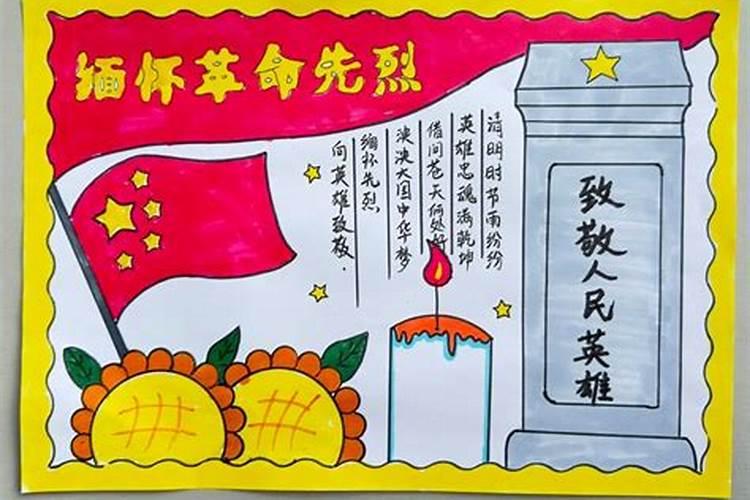 缅怀革命先烈
清明时节雨纷纷
英雄忠魂满乾坤
借问苍天何处好
泱泱大国中华梦
缅怀先烈
向英雄致敬.
致敬人民英雄